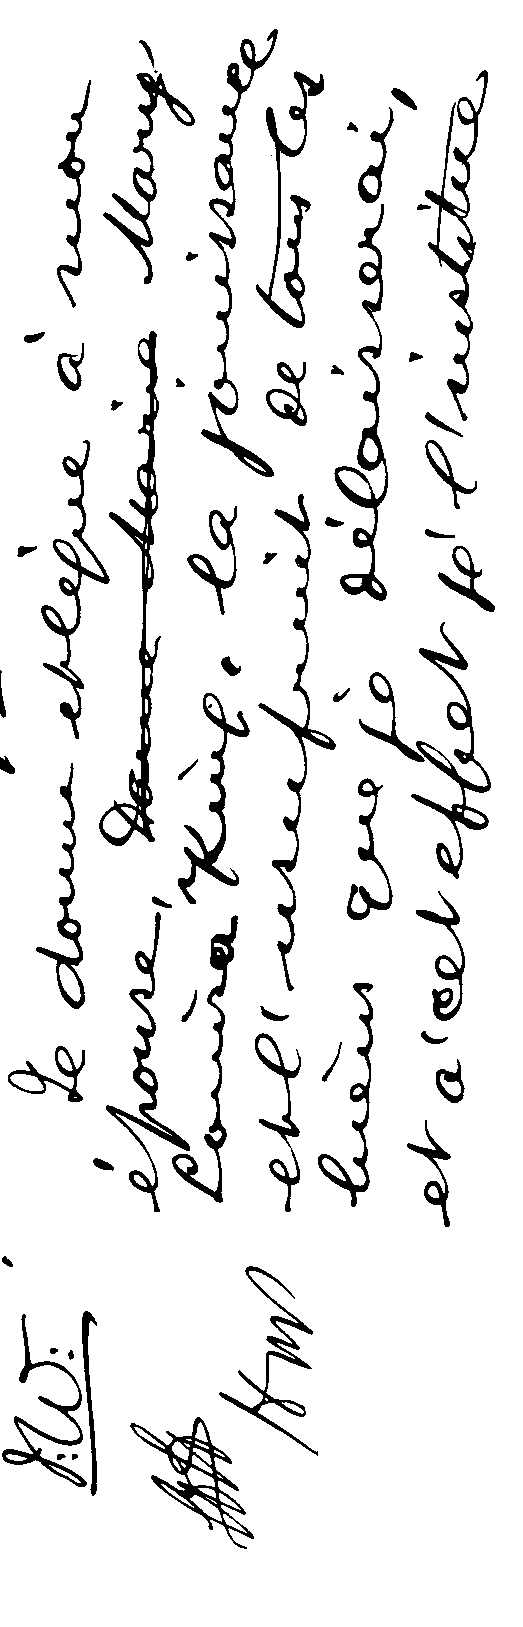 Je donne et lègue à mon
épouse, Dame Marie Mary
Louisa King, la jouissance
et l'usufruit de tous les
biens que je délaisserai,
et à cet effet je l'institue
J. W.